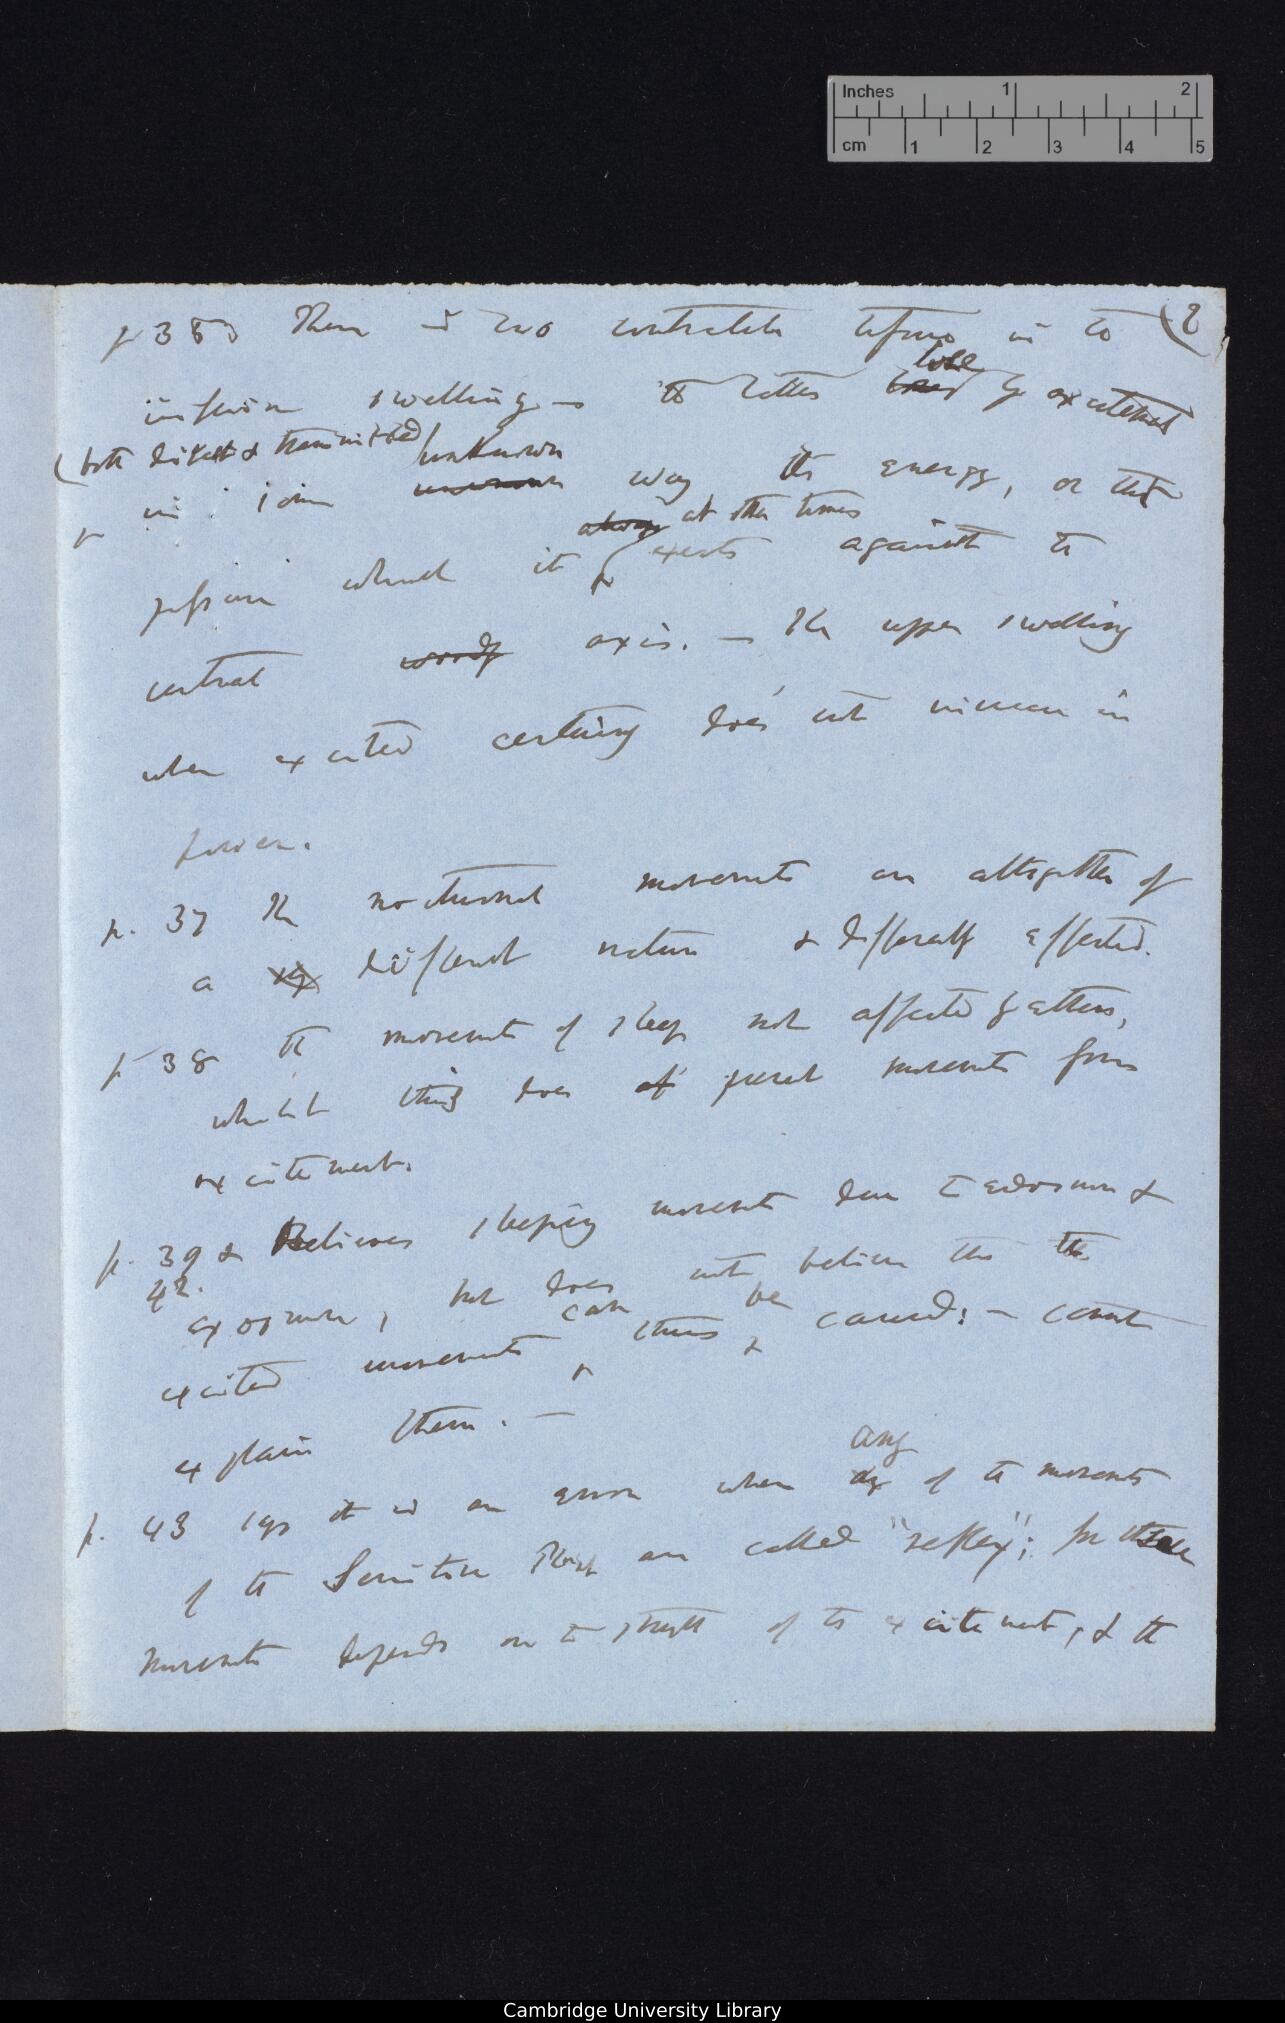 Inches 1 2
cm 1 2 3 4 5
(2
p 35 There is no contractile tissue in the
inferior swelling — the latter loses by excitement
(both direct & transmitted)
in some unknown way the energy, or the
pressure which it at other times exerts against the
central woody axis. — The upper swelling
when excited certainly does not increase in
power.
p. 37 The nocturnal movements are altogether of
a different nature & differently affected.
p 38 the movements of sleep not affected by ether,
whilst this does movements from
excitement.
p. 39 & Believes sleeping movements due to endosmose &
42.
exosmose, but does not believe that the
excited movements can thus be caused: — cannot
explain them. —
p. 43 says it is an error when any of the movements
of the Sensitive Plant are called "reflex"; for these
movements depends on the strength of the excitement, & the
Cambridge University Library